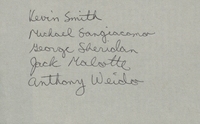 Kevin Smith
Michael Sangiacomo
George Sheridan
Jack
Anthony